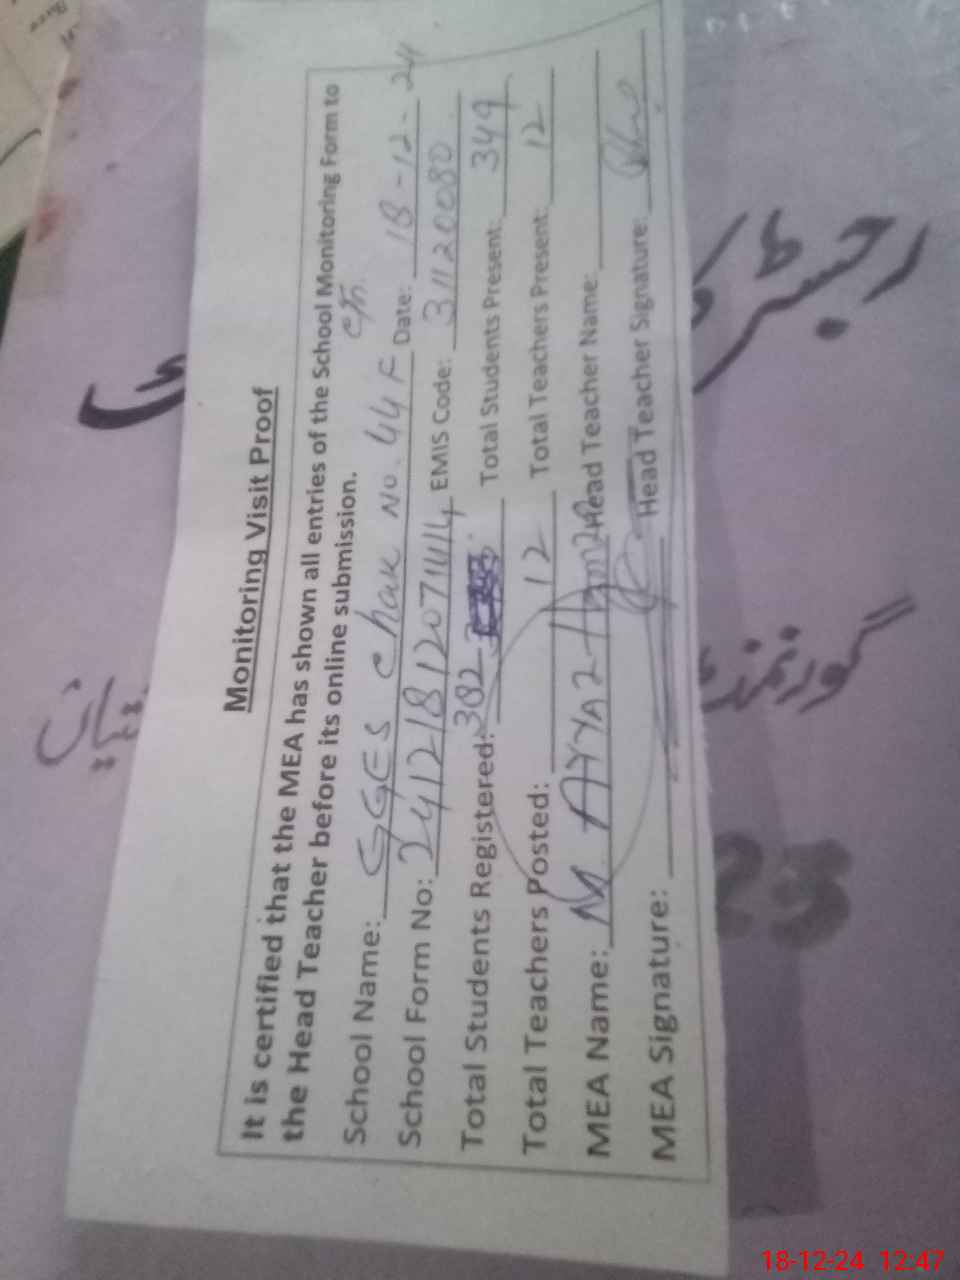 Monitoring Visit Proof
It is certified that the MEA has shown all entries of the School Monitoring Form to
the Head Teacher before its online submission.
School Name: GGES Chak No. 44 F Date: 18-12-24
School Form No: EMIS Code: 31120080
Total Students Registered: 382 Total Students Present: 349
Total Teachers Posted: 12 Total Teachers Present: 12
MEA Name: M. Head Teacher Name:
MEA Signature: Head Teacher Signature:
رجسٹر
گورنمنٹ
18-12-24 12:47